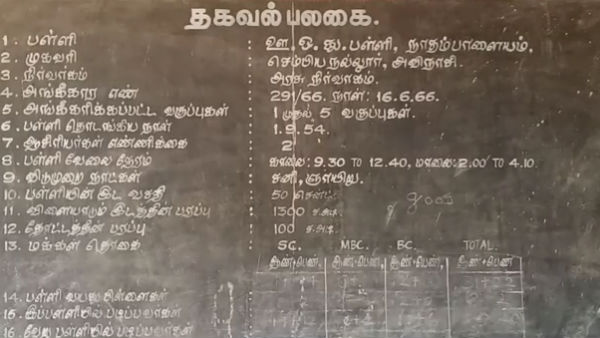 தகவல் பலகை.
1. பள்ளி : ஊ. ஒ. து. பள்ளி, நாதம்பாளையம்.
2. முகவரி : செம்பியநல்லூர், அவினாசி.
3. நிர்வாகம் : அரசு நிர்வாகம்.
4. அங்கீகார எண் : 291/66. நாள்: 16.6.66.
5. அங்கீகரிக்கப்பட்ட வகுப்புகள் : 1 முதல் 5 வகுப்புகள்.
6. பள்ளி தொடங்கிய நாள் : 1.9.54.
7. ஆசிரியர்கள் எண்ணிக்கை : 2
8. பள்ளி வேலை நேரம் : காலை: 9.30 TO 12.40, மாலை: 2.00 TO 4.10.
9. விடுமுறை நாட்கள் : சனி, ஞாயிறு.
10. பள்ளியின் இட வசதி : 50 சென்ட்
11. விளையாடும் இடத்தின் பரப்பு : 1300 ச.அடி.
12. தோட்டத்தின் பரப்பு : 100 ச.அடி.
13. மக்கள் தொகை : SC. MBC. BC. TOTAL.
ஆண்+பெண், ஆண்+பெண், ஆண்+பெண், ஆண்+பெண்
14. பள்ளி வயதுபிள்ளைகள் :
15. இப்பள்ளியில் படிப்பவர்கள் :
16. வேறு பள்ளியில் படிப்பவர்கள் :